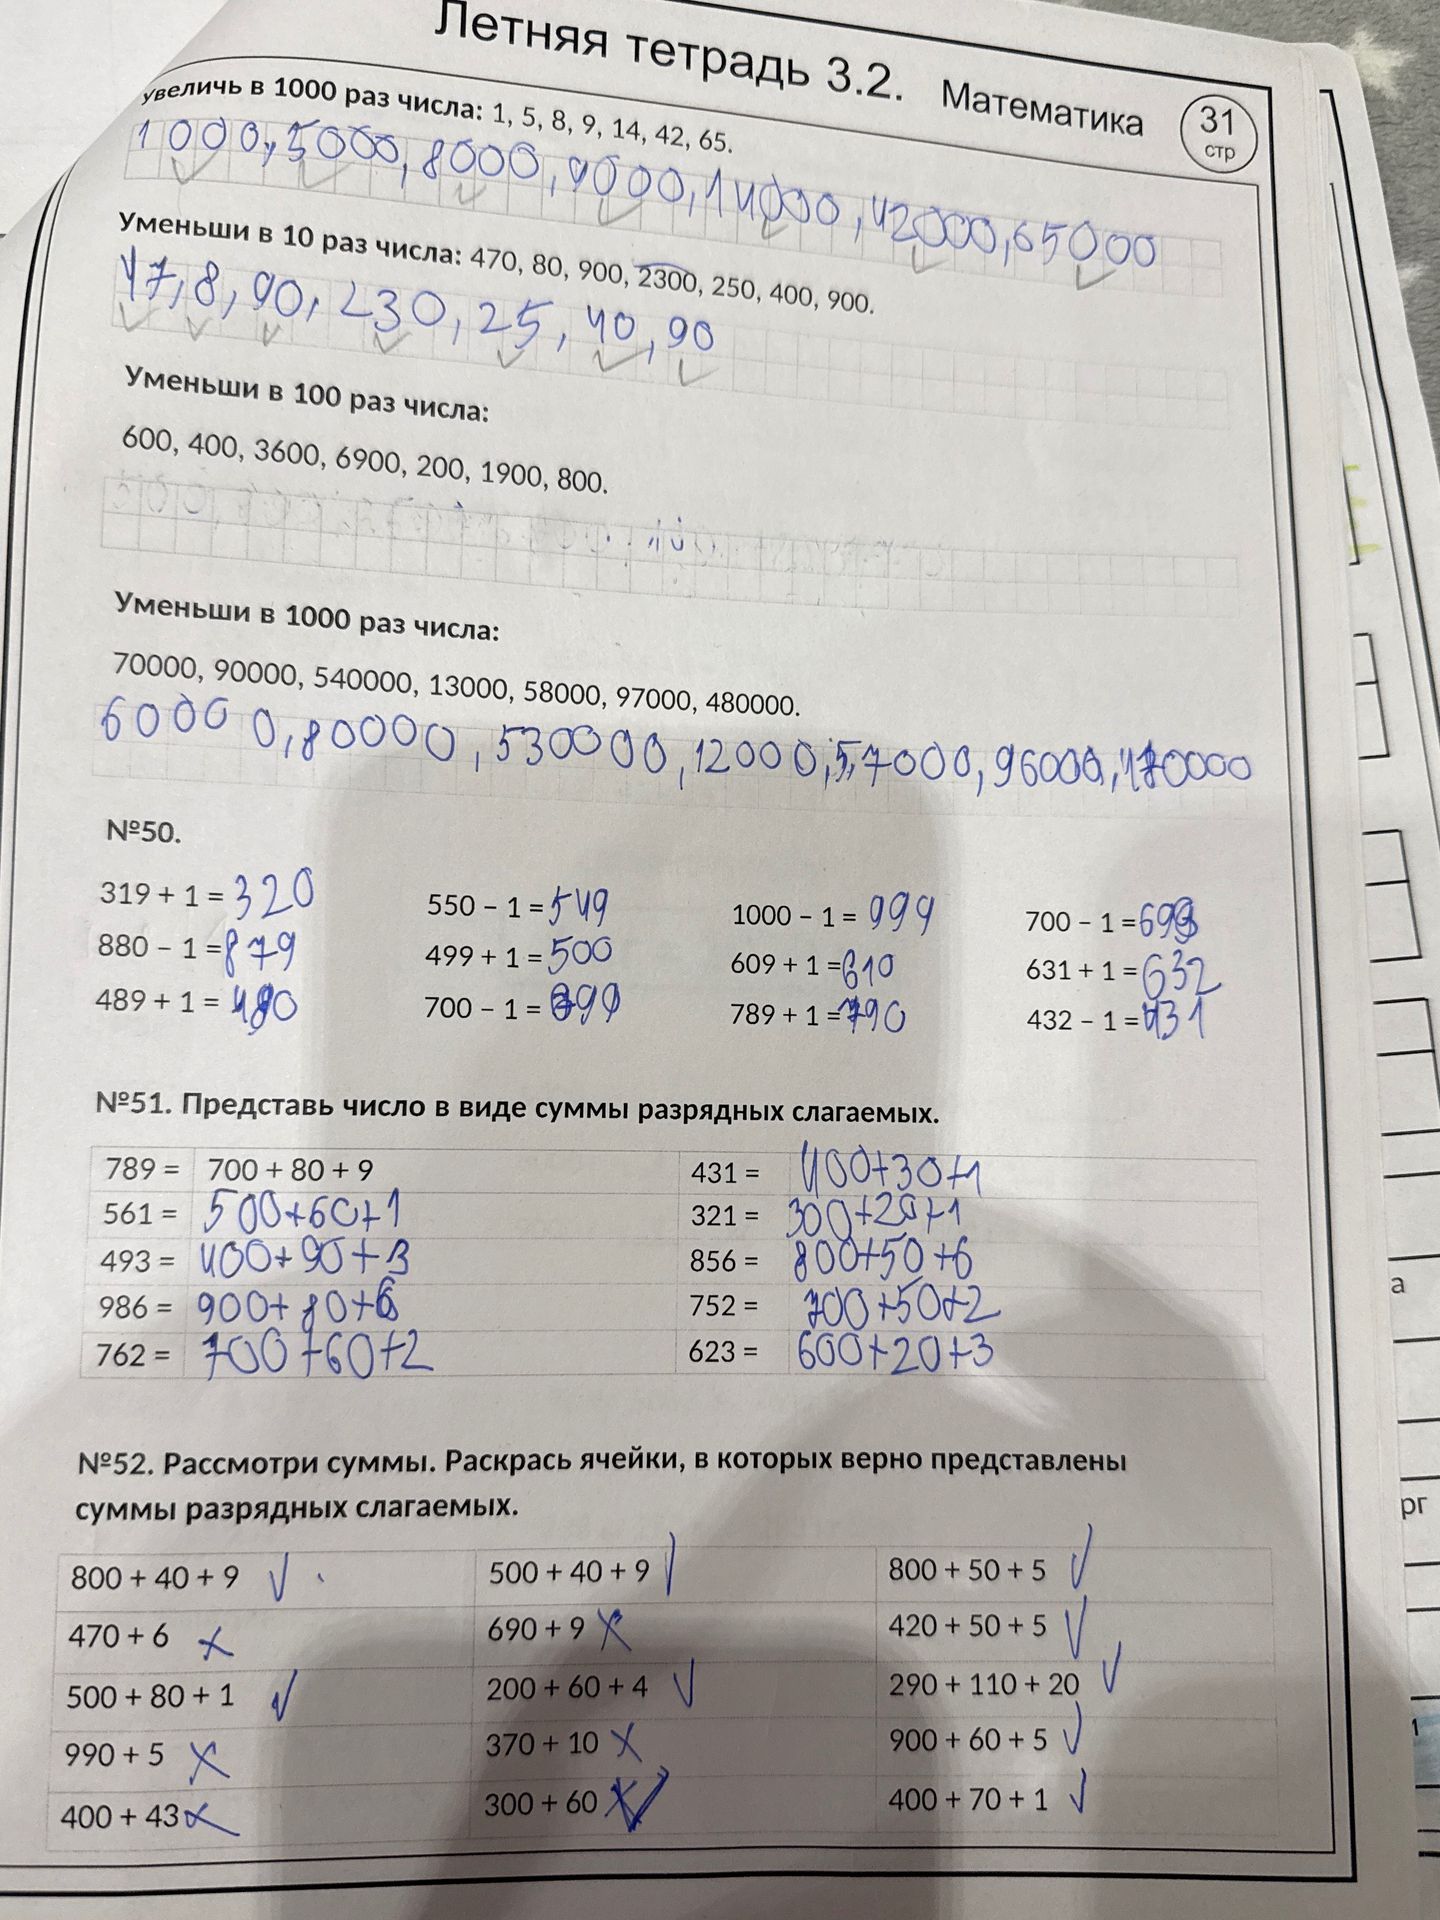 Летняя тетрадь 3.2. Математика
31
стр
увеличь в 1000 раз числа: 1, 5, 8, 9, 14, 42, 65.
1000, 5000, 8000, 9000, 14000, 42000, 65000
Уменьши в 10 раз числа: 470, 80, 900, 2300, 250, 400, 900.
47, 8, 90, 230, 25, 40, 90
Уменьши в 100 раз числа:
600, 400, 3600, 6900, 200, 1900, 800.
Уменьши в 1000 раз числа:
70000, 90000, 540000, 13000, 58000, 97000, 480000.
60000, 80000, 530000, 12000, 57000, 96000, 470000
№50.
319 + 1 = 320 550 – 1 = 549 1000 – 1 = 999 700 – 1 = 699
880 – 1 = 879 499 + 1 = 500 609 + 1 = 610 631 + 1 = 632
489 + 1 = 490 700 – 1 = 699 789 + 1 = 790 432 – 1 = 431
№51. Представь число в виде суммы разрядных слагаемых.
789 = 700 + 80 + 9 431 = 400+30+1
561 = 500+60+1 321 = 300+20+1
493 = 400+90+3 856 = 800+50+6
986 = 900+80+6 752 = 700+50+2
762 = 700+60+2 623 = 600+20+3
№52. Рассмотри суммы. Раскрась ячейки, в которых верно представлены
суммы разрядных слагаемых.
800 + 40 + 9 500 + 40 + 9 800 + 50 + 5
470 + 6 690 + 9 420 + 50 + 5
500 + 80 + 1 200 + 60 + 4 290 + 110 + 20
990 + 5 370 + 10 900 + 60 + 5
400 + 43 300 + 60 400 + 70 + 1
а
рг